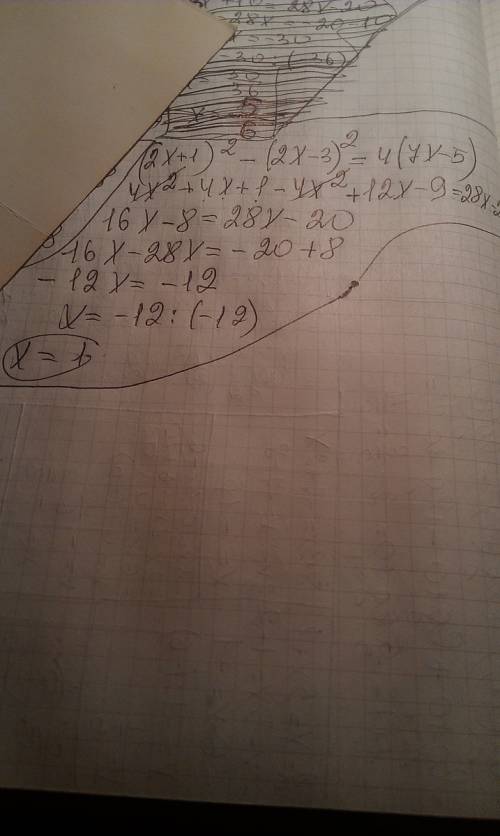 = 28x - 20
28x = -20 - 10
x = -30
-30 : (-36)
30
36
x 5
6
(2x+1)² - (2x-3)² = 4(7x-5)
4x² + 4x + 1 - 4x² + 12x - 9 = 28x - 2
16x - 8 = 28x - 20
16x - 28x = -20 + 8
- 12x = -12
x = -12 : (-12)
x = 1